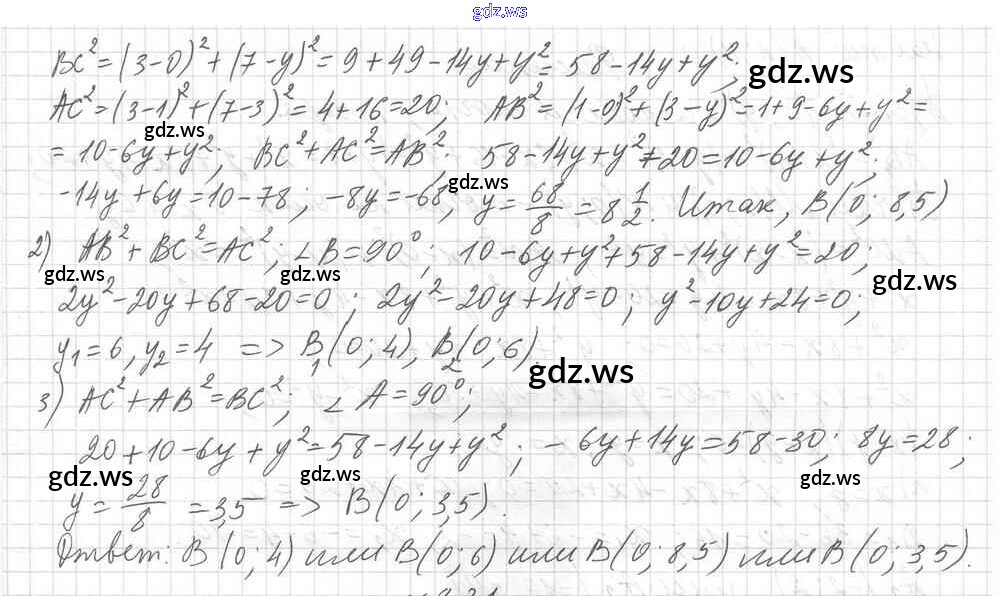 gdz.ws
BC² = (3-0)² + (7-y)² = 9 + 49 - 14y + y² = 58 - 14y + y²;
gdz.ws
AC² = (3-1)² + (7-3)² = 4 + 16 = 20; AB² = (1-0)² + (3-y)² = 1 + 9 - 6y + y² =
gdz.ws
= 10 - 6y + y²; BC² + AC² = AB²: 58 - 14y + y² + 20 = 10 - 6y + y²;
gdz.ws
-14y + 6y = 10 - 78; -8y = -68; y = 68/8 = 8 1/2. Итак, B(0; 8,5)
2) AB² + BC² = AC²; ∠B = 90°; 10 - 6y + y² + 58 - 14y + y² = 20;
gdz.ws gdz.ws gdz.ws
2y² - 20y + 68 - 20 = 0; 2y² - 20y + 48 = 0; y² - 10y + 24 = 0;
y₁ = 6, y₂ = 4 => B₁(0; 4), B₂(0; 6).
gdz.ws
3) AC² + AB² = BC²; ∠A = 90°;
20 + 10 - 6y + y² = 58 - 14y + y²; -6y + 14y = 58 - 30; 8y = 28;
gdz.ws gdz.ws gdz.ws
y = 28/8 = 3,5 => B(0; 3,5).
Ответ: B(0; 4) или B(0; 6) или B(0; 8,5) или B(0; 3,5).